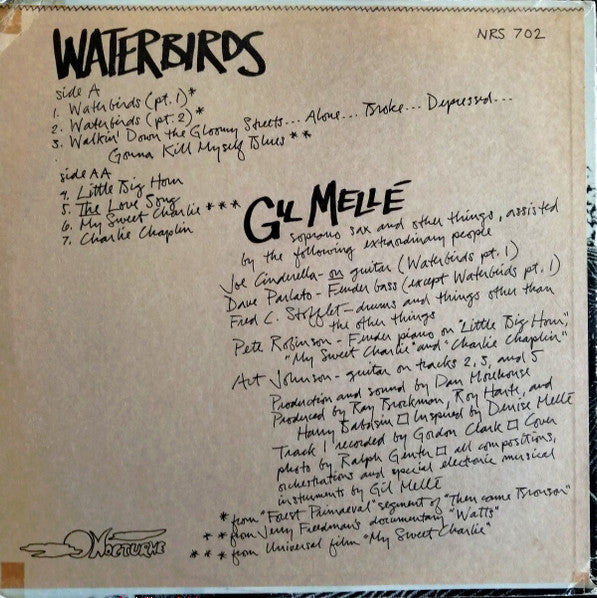 WATERBIRDS
NRS 702
side A
1. Waterbirds (pt. 1) *
2. Waterbirds (pt. 2) *
3. Walkin' Down the Gloomy Streets... Alone... Broke... Depressed...
Gonna Kill Myself Blues * *
side AA
4. Little Big Horn
5. The Love Song
6. My Sweet Charlie * * *
7. Charlie Chaplin
GIL MELLÉ
soprano sax and other things, assisted
by the following extraordinary people
Joe Cinderella - on guitar (Waterbirds pt. 1)
Dave Parlato - Fender bass (except Waterbirds pt. 1)
Fred C. Stofflet - drums and things other than
the other things
Pete Robinson - Fender piano on "Little Big Horn,"
"My Sweet Charlie" and "Charlie Chaplin"
Art Johnson - guitar on tracks 2, 3, and 5
Production and sound by Dan Morehouse
Produced by Ray Brockman, Roy Harte, and
Harry Babasin □ Inspired by Denise Mellé
Track 1 recorded by Gordon Clark □ Cover
photo by Ralph Genter □ all compositions,
orchestrations and special electronic musical
instruments by Gil Mellé
* from "Forest Primaeval" segment of "Then came Bronson"
* * from Jerry Freedman's documentary "Watts"
* * * from Universal film "My Sweet Charlie"
NOCTURNE